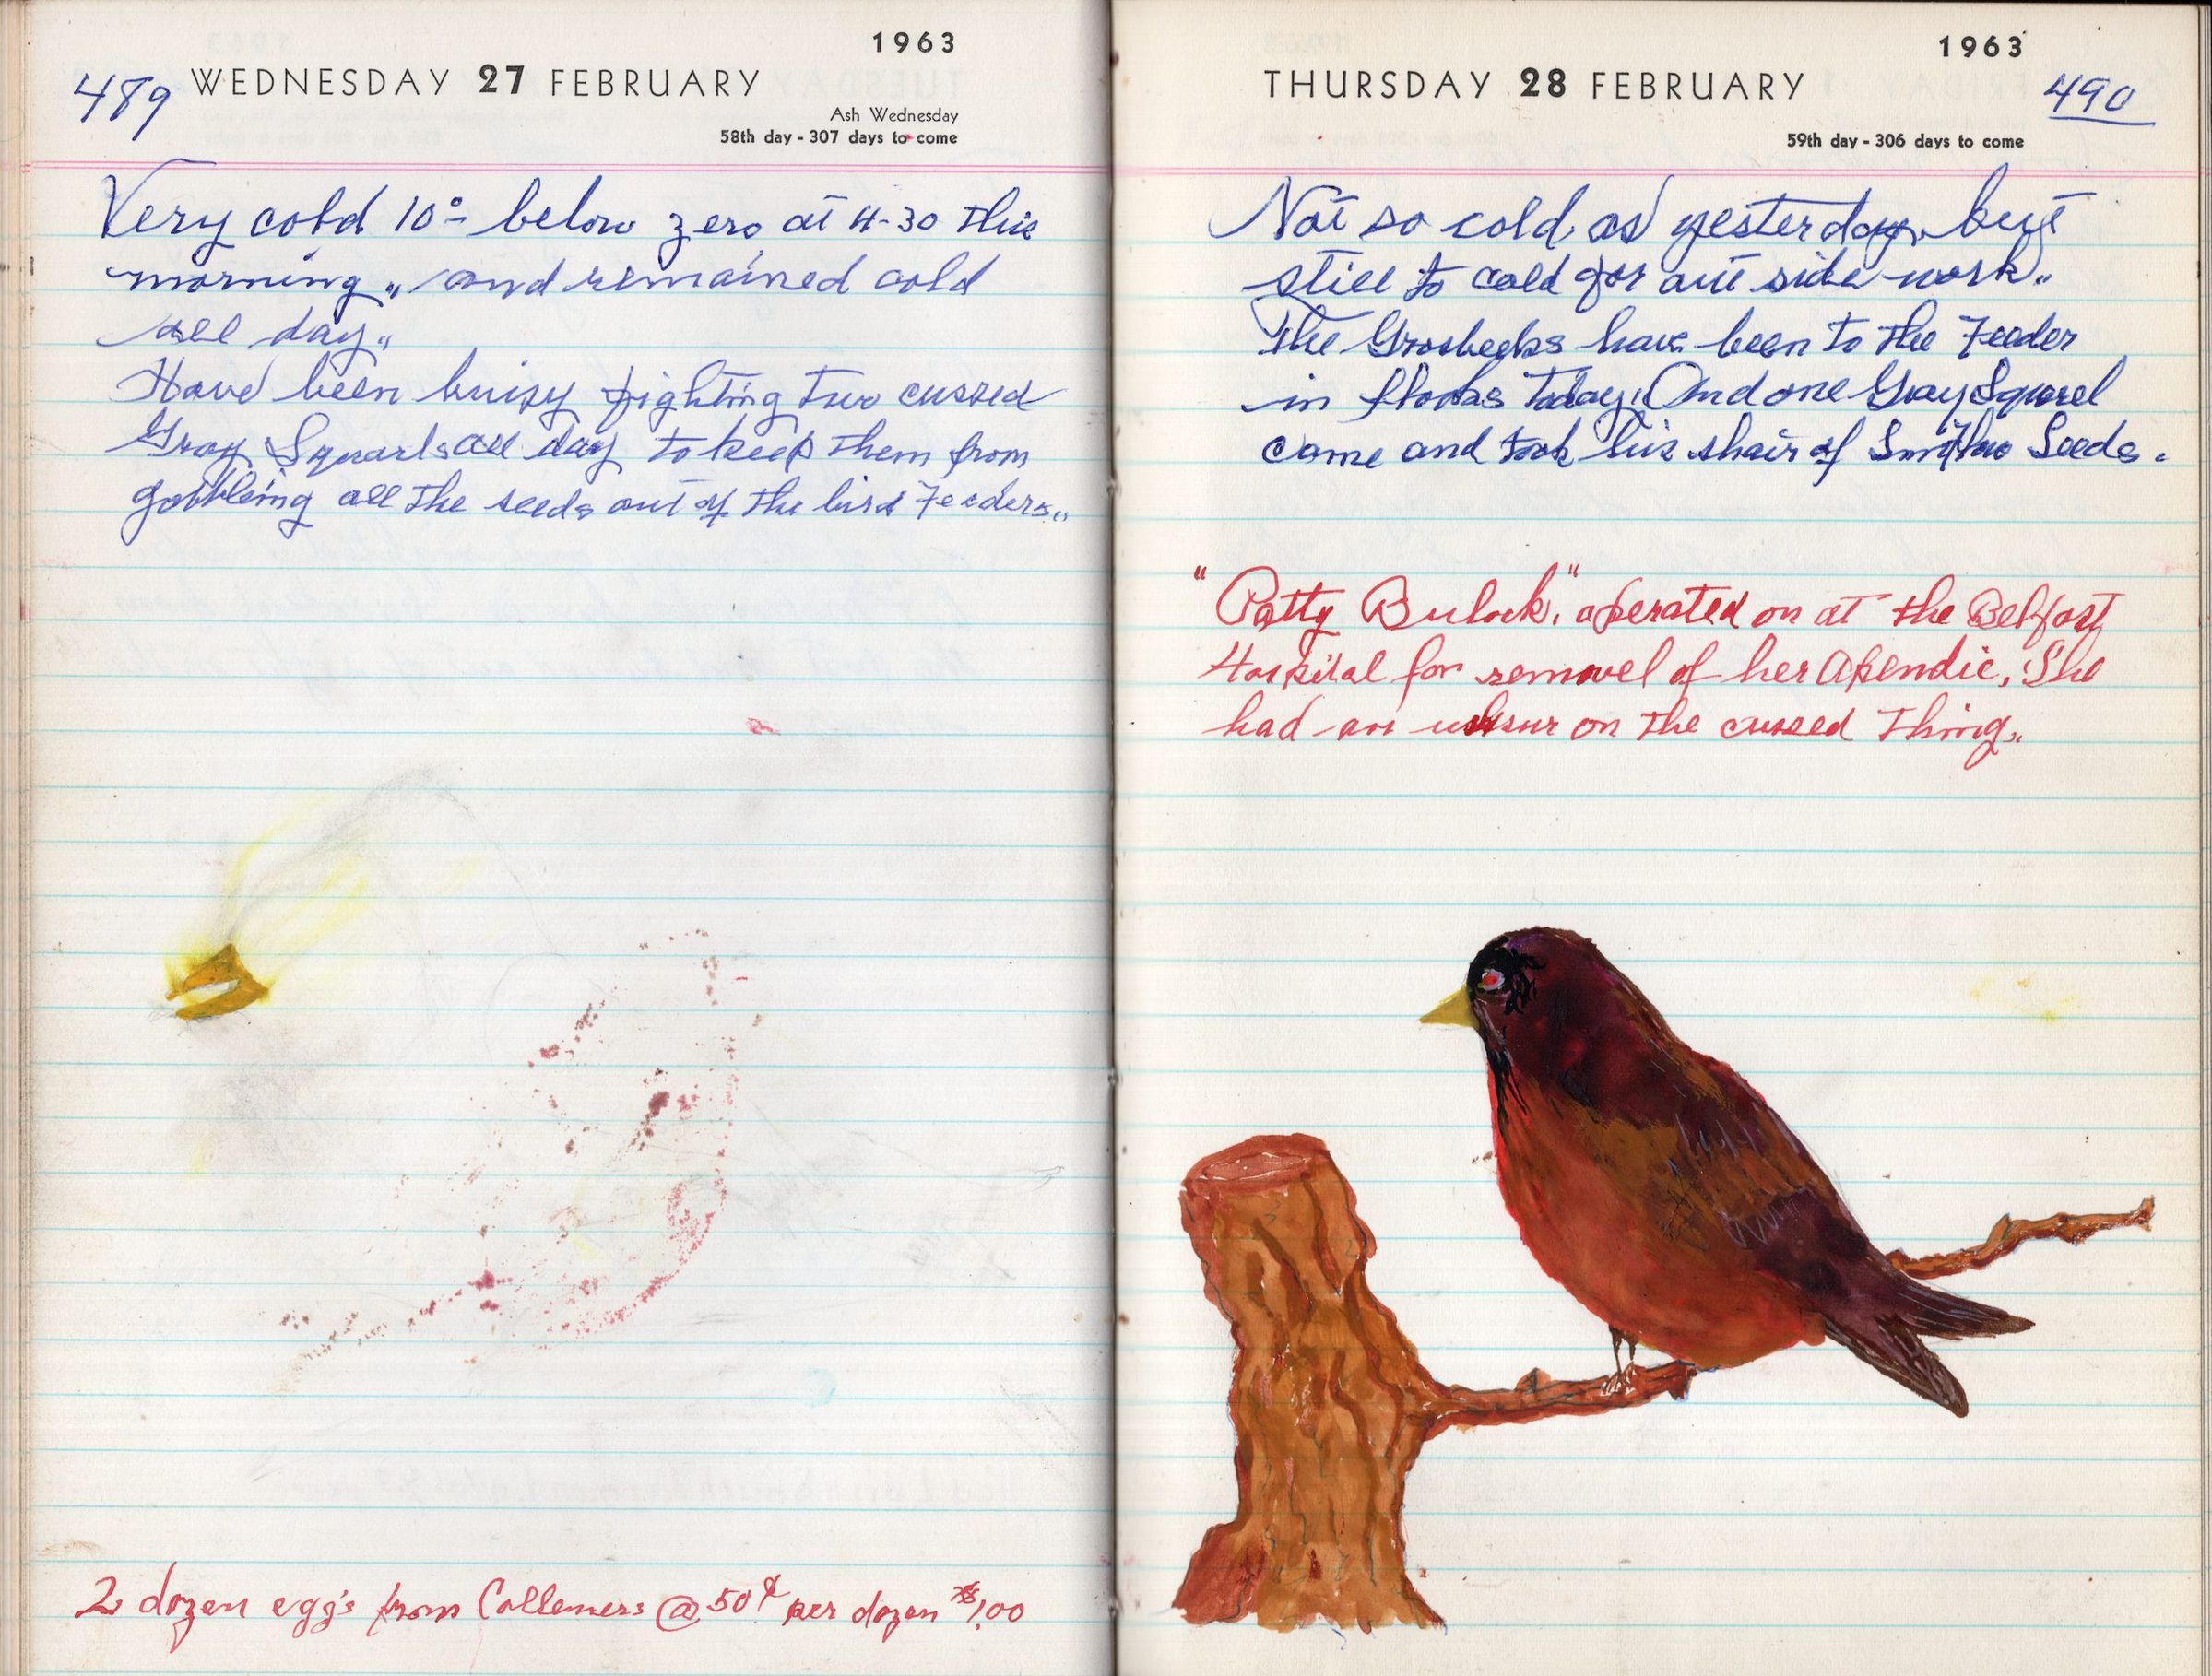 1963
489 WEDNESDAY 27 FEBRUARY
Ash Wednesday
58th day - 307 days to come
Very cold 10°- below zero at 4-30 this
morning„ and remained cold
all day„
Have been buisy fighting two cussed
Gray Squarls all day to keep them from
gobbleing all the seeds out of the bird Feeders„
2 dozen egg's from Collemers @ 50¢ per dozen $1,00
1963
THURSDAY 28 FEBRUARY 490
59th day - 306 days to come
Not so cold as yesterday, but
still to cold for out side work„
The Grosbeeks have been to the Feeder
in flocks today, And one Gray Squarel
came and took his shair of Seeds.
"Patty Bulock," operated on at the Belfast
Hospital for removel of her Apendic, She
had an on the cussed Thing„